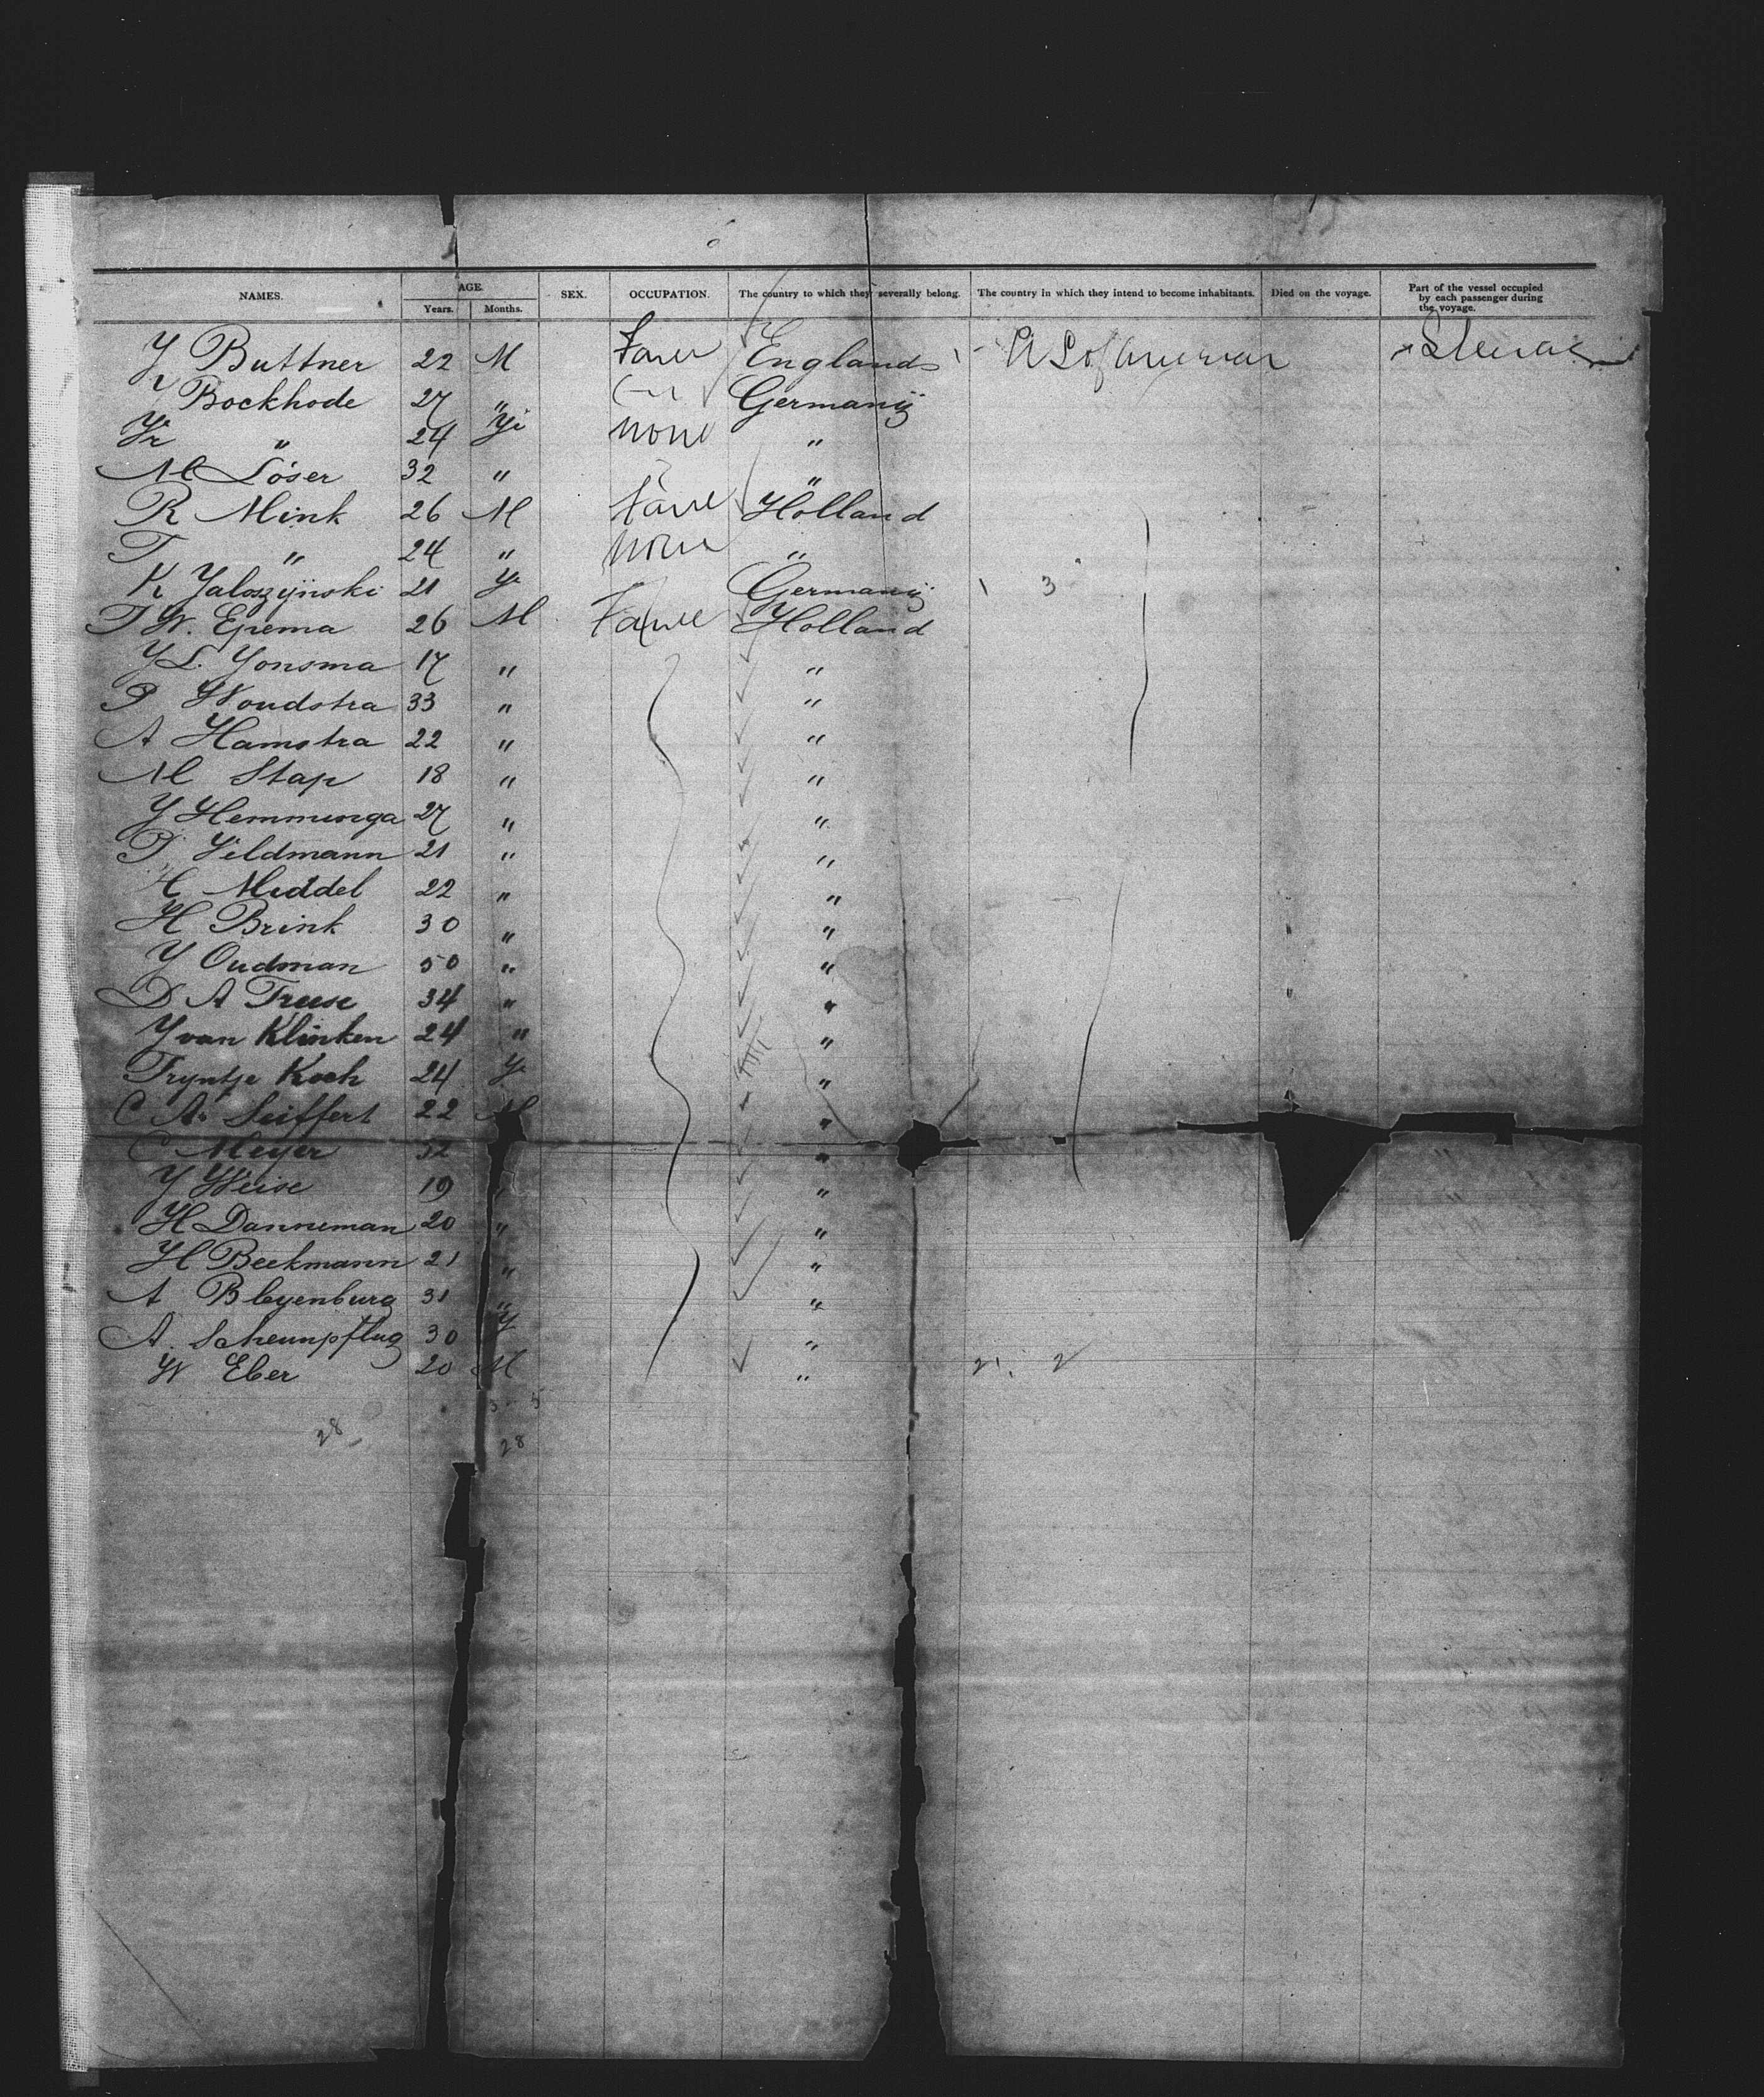 NAMES. AGE. SEX. OCCUPATION. The country to which they severally belong. The country in which they intend to become inhabitants. Died on the voyage. Part of the vessel occupied by each passenger during the voyage.
Years. Months.
Y Buttner 22 M England U S of American
Bockhode 27 " Germanÿ
" 24 none "
M Löser 32 " "
R Mink 26 M Holland
T " 24 " none "
K Yaloszÿnski 21 Germanÿ 1 3
T W. Epema 26 M Holland
Y L. Yonsma 17 " "
P Woudstra 33 " "
A Hamstra 22 " "
M Stap 18 " "
Y Hemminga 27 " "
P Veldmann 21 " "
Middel 22 " "
H Brink 30 " "
Y Oudman 50 " "
D A Treese 34 " "
Y van Klinken 24 " "
Tryntje Koch 24 "
C A. Seiffert 22 M "
C Meyer 32 "
Y Weise 19 " "
H Danneman 20 " "
H Beekmann 21 " "
A Bleyenburg 31 " "
A. Scheunpflug 30 "
W Eber 20 M " 2
3 5
28 28